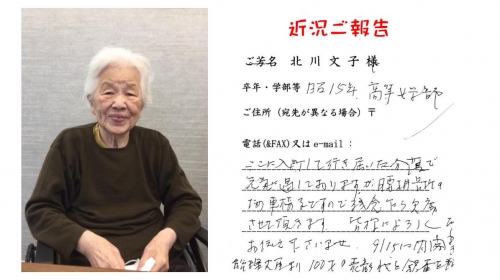 近況ご報告
ご芳名 北川文子様
卒年・学部等 昭15年. 高等女学部
ご住所(宛先が異なる場合)〒
電話(&FAX)又は e-mail:
ここに入所して行き届いた介護で
元気で過しておりますが
車椅子ですので残念乍ら欠席
させて頂きます 皆様によろしく
お伝え下さいませ 9/15に